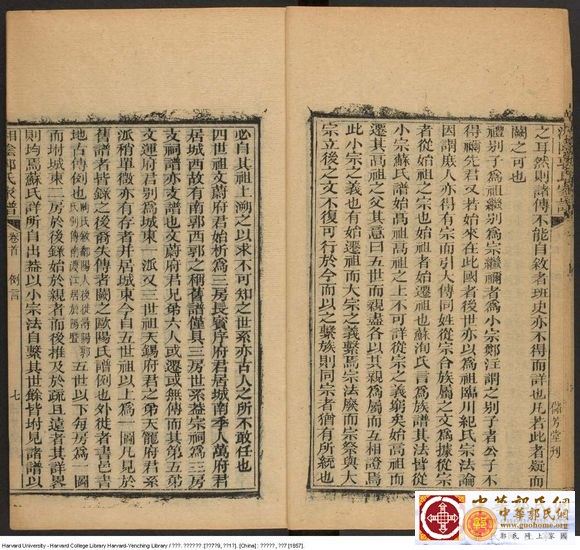 之耳然則諸傳不能自敘者班史亦不得而詳也凡若此者疑而
闕之可也
禮別子為祖繼別為宗繼禰者為小宗鄭注謂之別子者公子不
得禰先君又若始來在此國者後世亦以為祖臨川紀氏宗法論
因謂庶人亦得有宗而引大傳同姓從宗合族屬之文為據從宗
者從始祖之宗也始祖者始遷祖也蘇洵氏言為族譜其法皆從
小宗蘇氏譜始高祖高祖之上不可詳從宗之義窮矣始高祖而
遷其高祖之父其意曰五世而親盡各以其親為屬而互相證焉
此小宗之義也有始遷祖而大宗之義繫焉宗法廢而宗祭與大
宗立後之文不復可行於今而以之繫族則同宗者猶有所統也
必自其祖上溯之以求不可知之世系亦古人之所不敢任也
四世祖文蔚府君始析為三房長賓序府君居城南季人萬府君
居城西故有南郭西郭之稱舊譜僅具三房世系蓋宗祠為三房
支祠譜亦支譜也文蔚府君兄弟六人或遷或無傳而其第五弟
文運府君別為城東一派又三世祖天錫府君之弟天寵府君系
派稍單微亦有存者并居城東今自五世祖以上為一圖凡見於
舊譜者皆錄之後裔失傳者闕之歐陽氏譜例也外徙者書邑書
地古傳例也 五世以下每房為一圖
而坿城東二房於後錄始於親者而後推及於疏且遠者其詳畧
則均焉蘇氏詳所自出葢以小宗法自繫其世餘皆坿見諸譜以
湘陰郭氏家譜 卷首 例言 七
中华郭氏网
www.guohome.org
郭氏陸上家國
Harvard University - Harvard College Library Harvard-Yenching Library / ???. ??????.